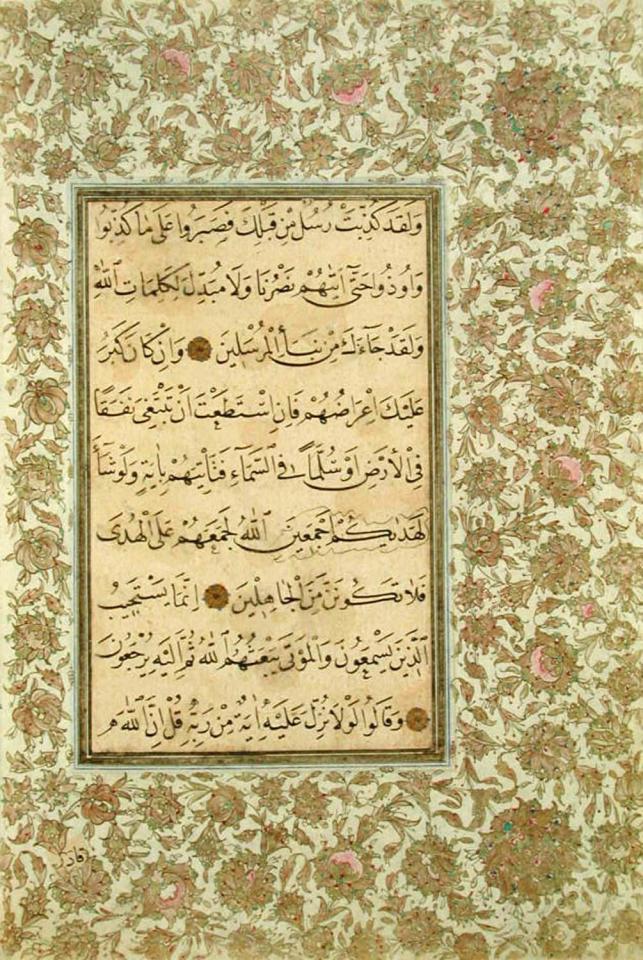 وَلَقَدْ كُذِّبَتْ رُسُلٌ مِنْ قَبْلِكَ فَصَبَرُوا عَلٰى مَا كُذِّبُوا
وَاُوذُوا حَتّٰى اَتٰيهُمْ نَصْرُنَا وَلَا مُبَدِّلَ لِكَلِمَاتِ اللّٰهِ
وَلَقَدْ جَاءَكَ مِنْ نَبَأِ الْمُرْسَلِينَ وَاِنْ كَانَ كَبُرَ
عَلَيْكَ اِعْرَاضُهُمْ فَاِنِ اسْتَطَعْتَ اَنْ تَبْتَغِيَ نَفَقًا
فِي الْاَرْضِ اَوْ سُلَّمًا فِي السَّمَاءِ فَتَأْتِيَهُمْ بِاٰيَةٍ وَلَوْ شَاءَ
لَهَدٰيكُمْ اَجْمَعِينَ اللّٰهُ لَجَمَعَهُمْ عَلَى الْهُدٰى
فَلَا تَكُونَنَّ مِنَ الْجَاهِلِينَ اِنَّمَا يَسْتَجِيبُ
الَّذِينَ يَسْمَعُونَ وَالْمَوْتٰى يَبْعَثُهُمُ اللّٰهُ ثُمَّ اِلَيْهِ يُرْجَعُونَ
وَقَالُوا لَوْلَا نُزِّلَ عَلَيْهِ اٰيَةٌ مِنْ رَبِّهِ قُلْ اِنَّ اللّٰهَ
قادر